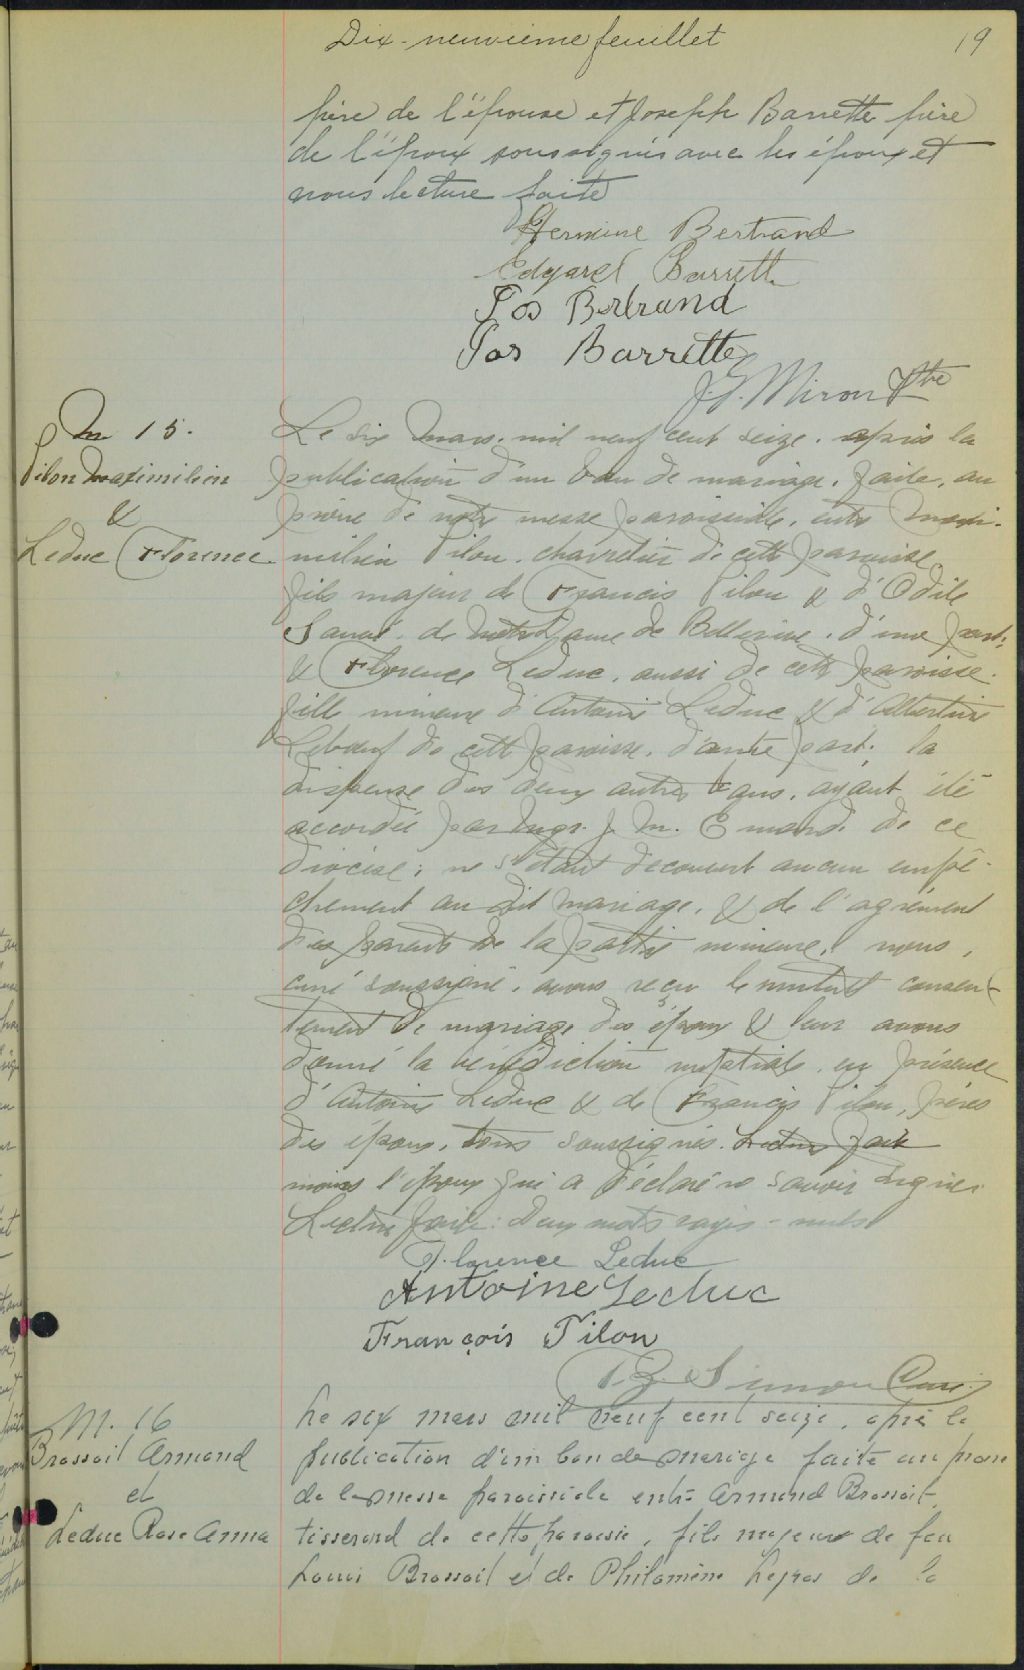 Dix-neuvième feuillet
19
père de l'épouse et Joseph Barrette père
de l'époux soussignés avec les époux et
nous lecture faite
Hermine Bertrand
Edgard Barrette
Jos Bertrand
Jos Barrette
J. Miron Ptre
M 15.
Pilon Maximilien
&
Leduc Florence
Le six Mars. mil neuf cent seize. après la
publication d'un ban de mariage. faite. au
prône de notre messe paroissiale. entre Maxi-
milien Pilon. charretier de cette paroisse
fils majeur de Francis Pilon & d'Odile
Sauvé. de Notre Dame de Bellerive. d'une part;
& Florence Leduc. aussi de cette paroisse.
fille mineure d'Antoine Leduc & d'Albertine
Leboeuf de cette paroisse. d'autre part; la
dispense des deux autres bans. ayant été
accordée par Mgr. J. M. Emard. de ce
diocèse; ne s'étant découvert aucun empê-
chement au dit mariage. & de l'agrément
des parents de la partie mineure. nous,
curé soussigné. avons reçu le mutuel consen-
tement de mariage des époux & leur avons
donné la bénédiction nuptiale. en présence
d'Antoine Leduc & de Francis Pilon, pères
des époux, tous soussignés. Lecture faite
moins l'époux qui a déclaré ne savoir signer
Lecture faite: Deux mots rayés - nuls
Florence Leduc
Antoine Leduc
François Pilon
Simon Curé
M. 16
Brossoit Armand
et
Leduc Rose Anna
Le six mars mil neuf cent seize, après la
publication d'un ban de mariage faite au prone
de la messe paroissiale entre Armand Brossoit,
tisserand de cette paroisse, fils majeur de feu
Louis Brossoit et de Philomène Legros de la